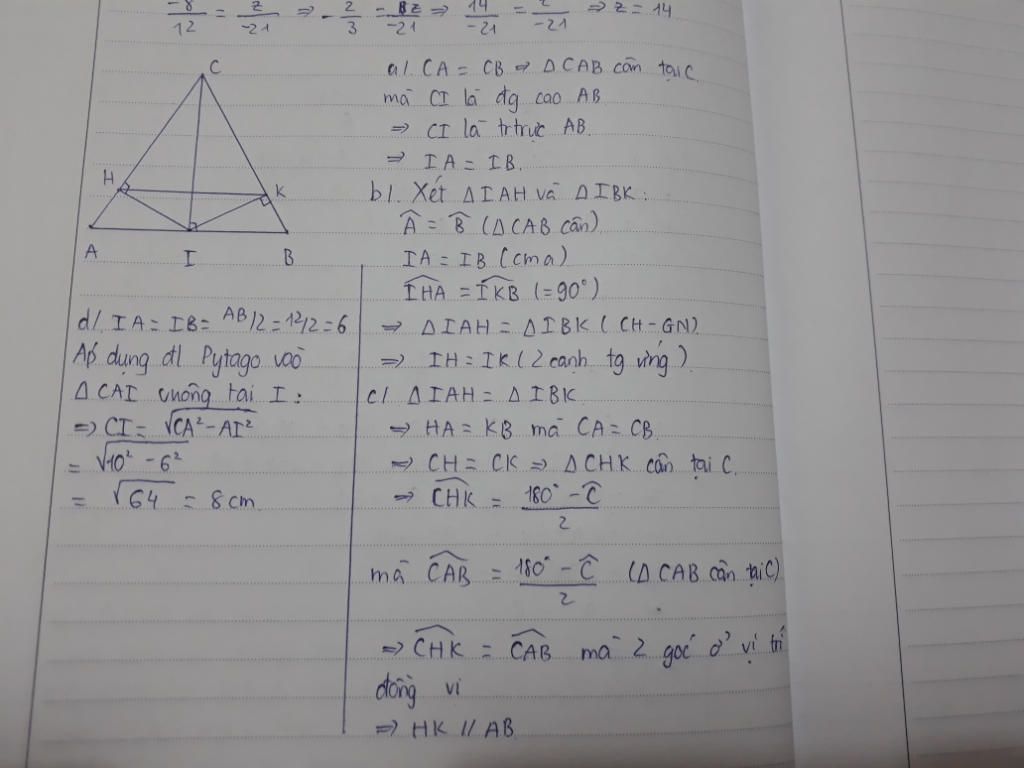 -8/12 = z/-21 ⇒ -2/3 = z/-21 ⇒ 14/-21 = z/-21 ⇒ z = 14
C
H
K
A
I
B
a/. CA = CB ⇒ Δ CAB cân tại C
mà CI là đg cao AB
⇒ CI là trtrực AB.
⇒ IA = IB.
b/. Xét Δ IAH và Δ IBK:
Â = B̂ (Δ CAB cân)
IA = IB (cma)
IHA = IKB (=90°)
⇒ Δ IAH = Δ IBK (CH-GN)
⇒ IH = IK (2 canh tg ứng)
c/ Δ IAH = Δ IBK
⇒ HA = KB mà CA = CB
⇒ CH = CK ⇒ Δ CHK cân tại C.
⇒ CHK = (180° - Ĉ)/2
mà CAB = (180° - Ĉ)/2 (Δ CAB cân tại C)
⇒ CHK = CAB mà 2 góc ở vị trí
đồng vi
⇒ HK // AB
d/. IA = IB = AB/2 = 12/2 = 6
Áp dụng đl Pytago vào
Δ CAI vuông tai I:
⇒ CI = √CA² - AI²
= √10² - 6²
= √64 = 8 cm.